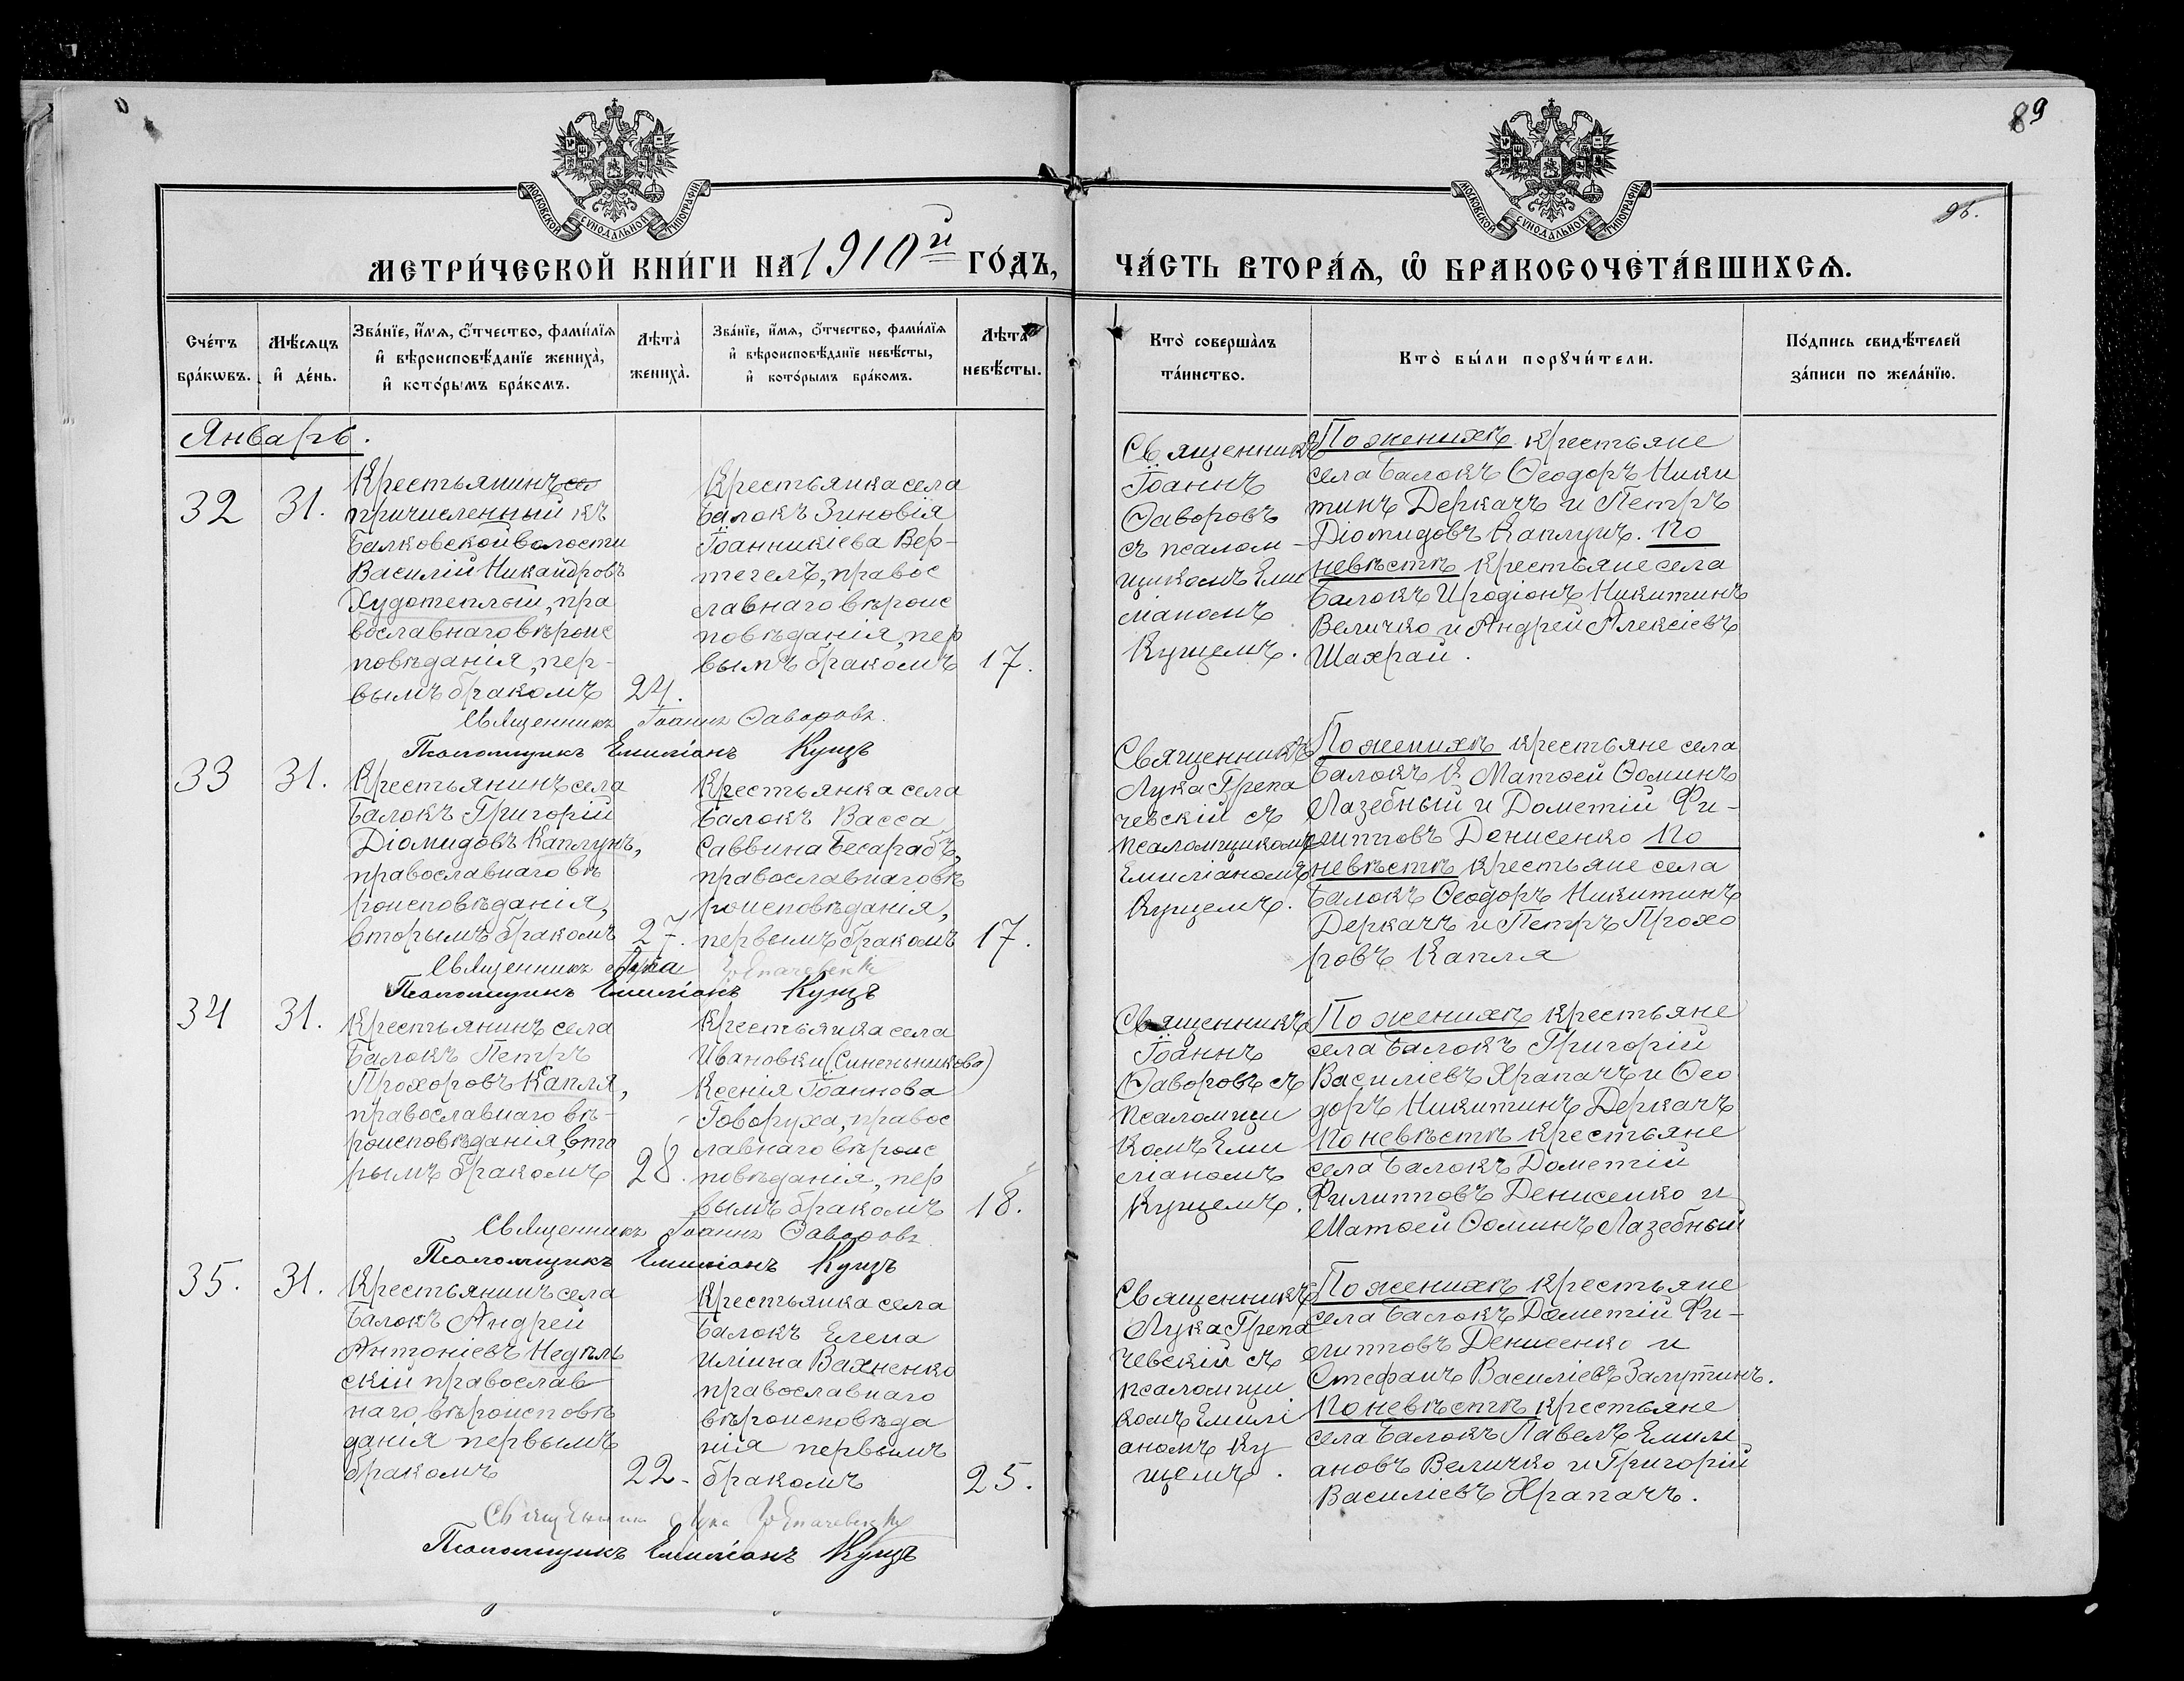 89
95.
МОСКОВСКОЙ СѴНОДАЛЬНОЙ ТИПОГРАФІИ
МОСКОВСКОЙ СѴНОДАЛЬНОЙ ТИПОГРАФІИ
МЕТРИ́ЧЕСКОЙ КНИ́ГИ НА 1910й ГО́ДЪ,
ЧА́СТЬ ВТОРА́Ѧ, Ѽ БРАКОСОЧЕТА́ВШИХСѦ.
Сче́тъ бра́кѡвъ.
Мѣ́сѧцъ и҆ де́нь.
Зва́нїе, и҆́мѧ, ѻ҆́тчество, фами́лїѧ и҆ вѣроисповѣ́данїе жениха̀, и҆ кото́рымъ бра́комъ.
Лѣта̀ жениха̀.
Зва́нїе, и҆́мѧ, ѻ҆́тчество, фами́лїѧ и҆ вѣроисповѣ́данїе невѣ́сты, и҆ кото́рымъ бра́комъ.
Лѣта̀ невѣ́сты.
Кто̀ соверша́лъ та́инство.
Кто̀ бы́ли порꙋчи́тели.
По́дпись свидѣ́телей за́писи по жела́нїю.
Январь.
32
31.
Крестьянинъ се
причисленный къ
Балковской волости
Василій Никандровъ
Худотеплый, пра
вославнаго вѣроис
повѣданія, пер-
вымъ бракомъ
24.
Крестьянка села
Балокъ Зиновія
Іоанникіева Вер-
тегелъ, правос
лавнаго вѣроис
повѣданія, пер
вымъ бракомъ
17.
Священникъ
Іоаннъ
Ѳаворовъ
съ псалом-
щикомъ Еми
ліаномъ
Кущемъ.
По женихѣ крестьяне
села Балокъ Ѳеодоръ Ники
тинъ Деркачъ и Петръ
Діомидовъ Каплунъ. По
невѣстѣ крестьяне села
Балокъ Иродіонъ Никитинъ
Величко и Андрей Алексіевъ
Шахрай.
Священникъ Іоаннъ Ѳаворовъ.
Псаломщикъ Емиліанъ Кущъ
33
31.
Крестьянинъ села
Балокъ Григорій
Діомидовъ Каплунъ,
православнаго вѣ
роисповѣданія,
вторымъ бракомъ
27.
Крестьянка села
Балокъ Васса
Саввина Бесарабъ,
православнаго вѣ
роисповѣданія,
первымъ бракомъ
17.
Священникъ
Лука Грепа
чевскій съ
псаломщикомъ
Емиліаномъ
Кущемъ.
По женихѣ крестьяне села
Балокъ Матѳей Ѳоминъ
Лазебный и Дометій Фи-
липповъ Денисенко По
невѣстѣ крестьяне села
Балокъ Ѳеодоръ Никитинъ
Деркачъ и Петръ Прохо
ровъ Капля
Священникъ Лука Грепачевскій
Псаломщикъ Емиліанъ Кущъ
34
31.
Крестьянинъ села
Балокъ Петръ
Прохоровъ Капля,
православнаго вѣ-
роисповѣданія, вто
рымъ бракомъ
28.
Крестьянка села
Ивановки (Синельникова)
Ксенія Іоаннова
Говоруха, правос
лавнаго вѣроис
повѣданія, пер
вымъ бракомъ
18.
Священникъ
Іоаннъ
Ѳаворовъ съ
псаломщи
комъ Еми
ліаномъ
Кущемъ.
По женихѣ крестьяне
села Балокъ Григорій
Василіевъ Храпачъ и Ѳео
доръ Никитинъ Деркачъ
По невѣстѣ крестьяне
села Балокъ Дометій
Филипповъ Денисенко и
Матѳей Ѳоминъ Лазебный
Священникъ Іоаннъ Ѳаворовъ
Псаломщикъ Емиліанъ Кущъ
35.
31.
Крестьянинъ села
Балокъ Андрей
Антоніевъ Недѣль
скій православ
наго вѣроисповѣ
данія первымъ
бракомъ
22.
Крестьянка села
Балокъ Елена
Иліина Вахненко
православнаго
вѣроисповѣда
нія первымъ
бракомъ
25.
Священникъ
Лука Грепа
чевскій съ
псаломщи
комъ Емилі
аномъ Ку
щемъ.
По женихѣ крестьяне
села Балокъ Дометій Фи-
липповъ Денисенко и
Стефанъ Василіевъ Залутинъ.
По невѣстѣ крестьяне
села Балокъ Павелъ Емили
ановъ Величко и Григорій
Василіевъ Храпачъ.
Священникъ Лука Грепачевскій
Псаломщикъ Емиліанъ Кущъ